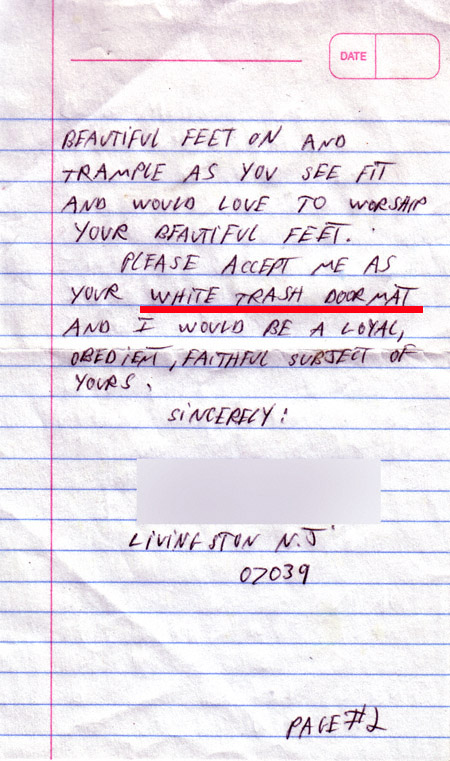 DATE
BEAUTIFUL FEET ON AND
TRAMPLE AS YOU SEE FIT
AND WOULD LOVE TO WORSHIP
YOUR BEAUTIFUL FEET.
PLEASE ACCEPT ME AS
YOUR WHITE TRASH DOORMAT
AND I WOULD BE A LOYAL,
OBEDIENT, FAITHFUL SUBJECT OF
YOURS.
SINCERELY:
LIVINGSTON N.J
07039
PAGE #2